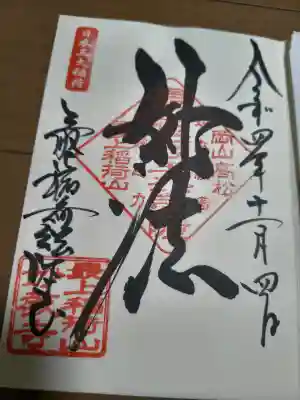 令和四年十一月四日
岡山高松
妙法
最上稲荷山
日本三大稲荷
最上稲荷総本山
最上稲荷山